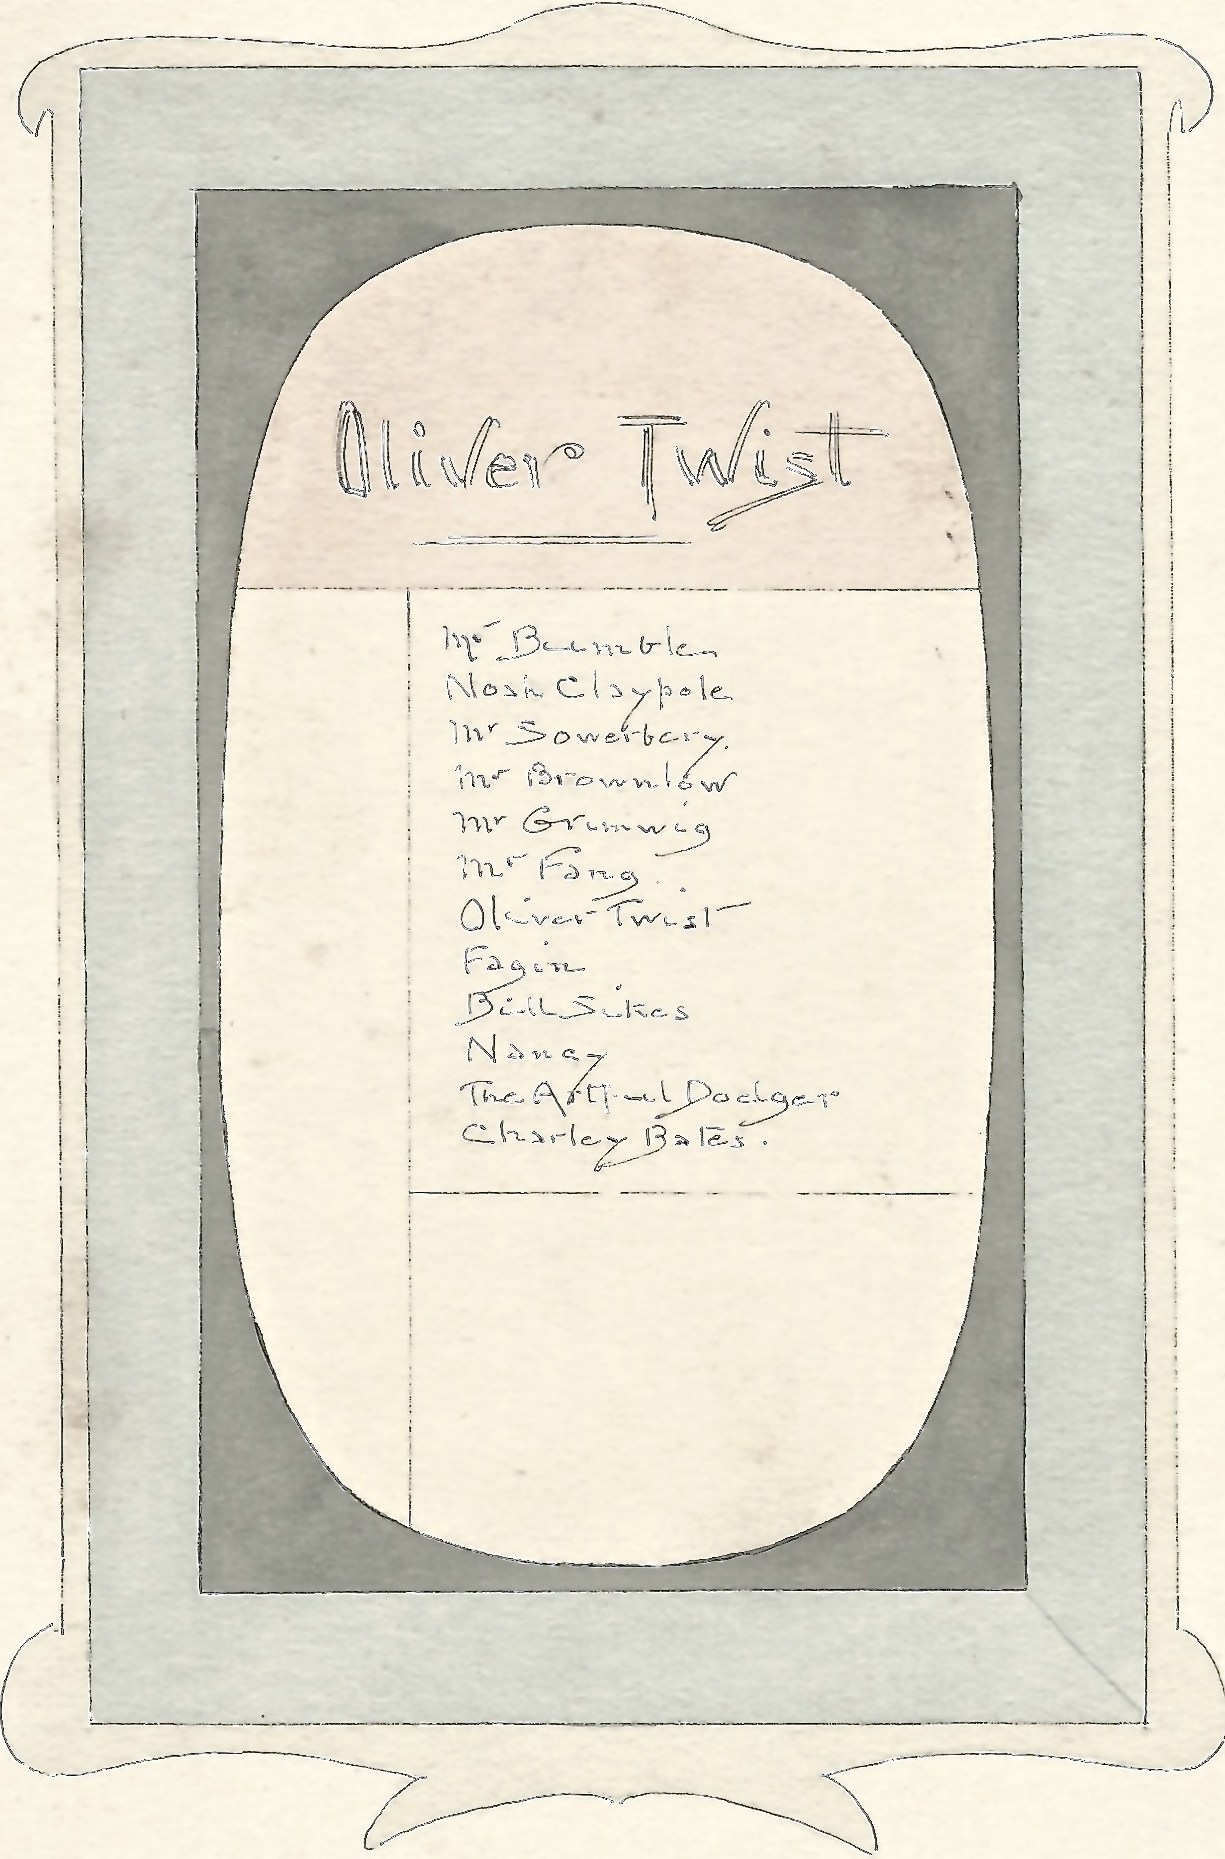 Oliver Twist
Mr Bumble
Noah Claypole
Mr Sowerbery.
Mr Brownlow
Mr Grimwig
Mr Fang.
Oliver Twist
Fagin
Bill Sikes
Nancy
The Artful Dodger
Charley Bates.